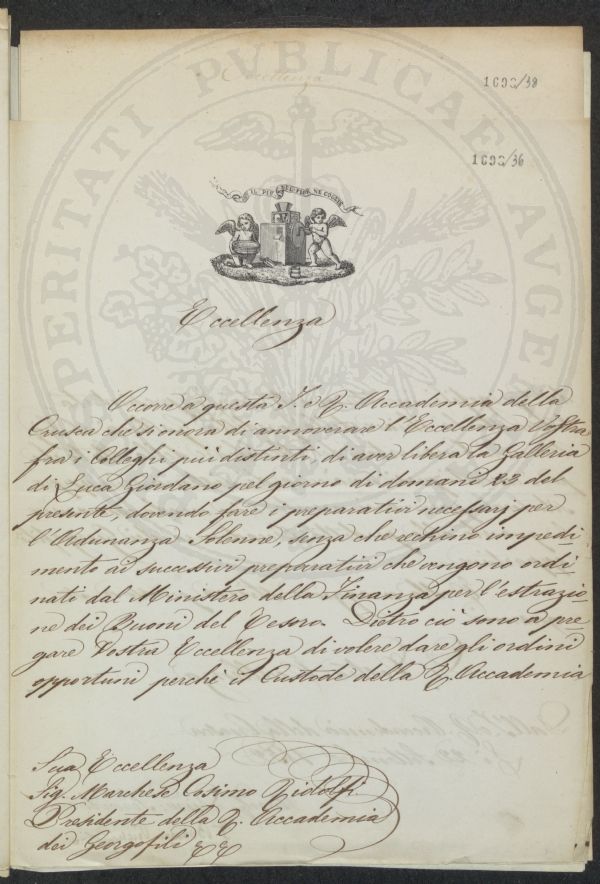 Eccellenza
1698/38
1698/36
IL PIÙ BEL FIOR NE COGLIE
Eccellenza
Occorre a questa I. e R. Accademia della
Crusca che si onora di annoverare l'Eccellenza Vostra
fra i Colleghi più distinti, di aver libera la Galleria
di Luca Giordano pel giorno di domani 23 del
presente, dovendo fare i preparativi necessarj per
l'Adunanza Solenne, senza che rechino impedi
mento ai successivi preparativi che vengono ordi
nati dal Ministero della Finanza per l'estrazio
ne dei Buoni del Tesoro. Dietro ciò sono a pre
gare Vostra Eccellenza di volere dare gli ordini
opportuni perchè il Custode della R. Accademia
Sua Eccellenza
Sig. Marchese Cosimo Ridolfi
Presidente della R. Accademia
dei Georgofili
PROSPERITATI PUBLICAE AUGENDAE